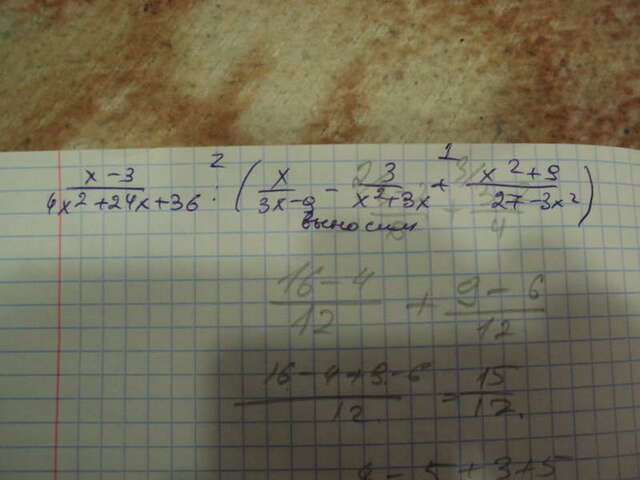 x-3/4x²+24x+36 :² (x/3x-9 - 3/x²+3x +¹ x²+9/27-3x²)
выносим
16-4/12 + 9-6/12
16-4+9-6/12 = 15/12